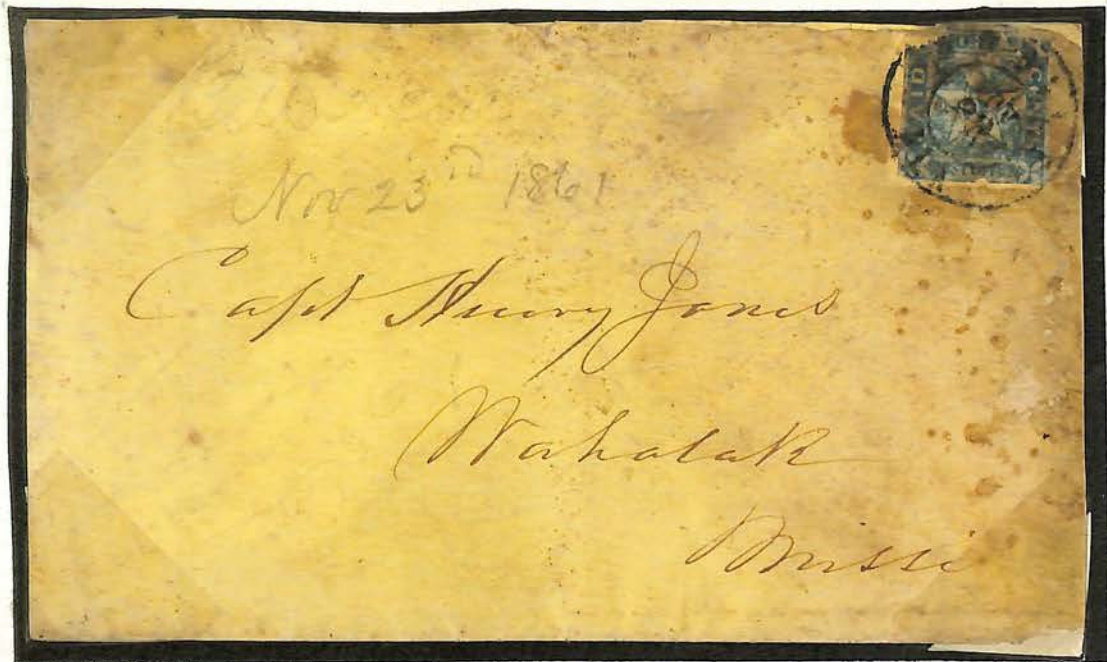 PAID
Nov 23rd 1861
Capt Henry Jones
Wahalak
Missi